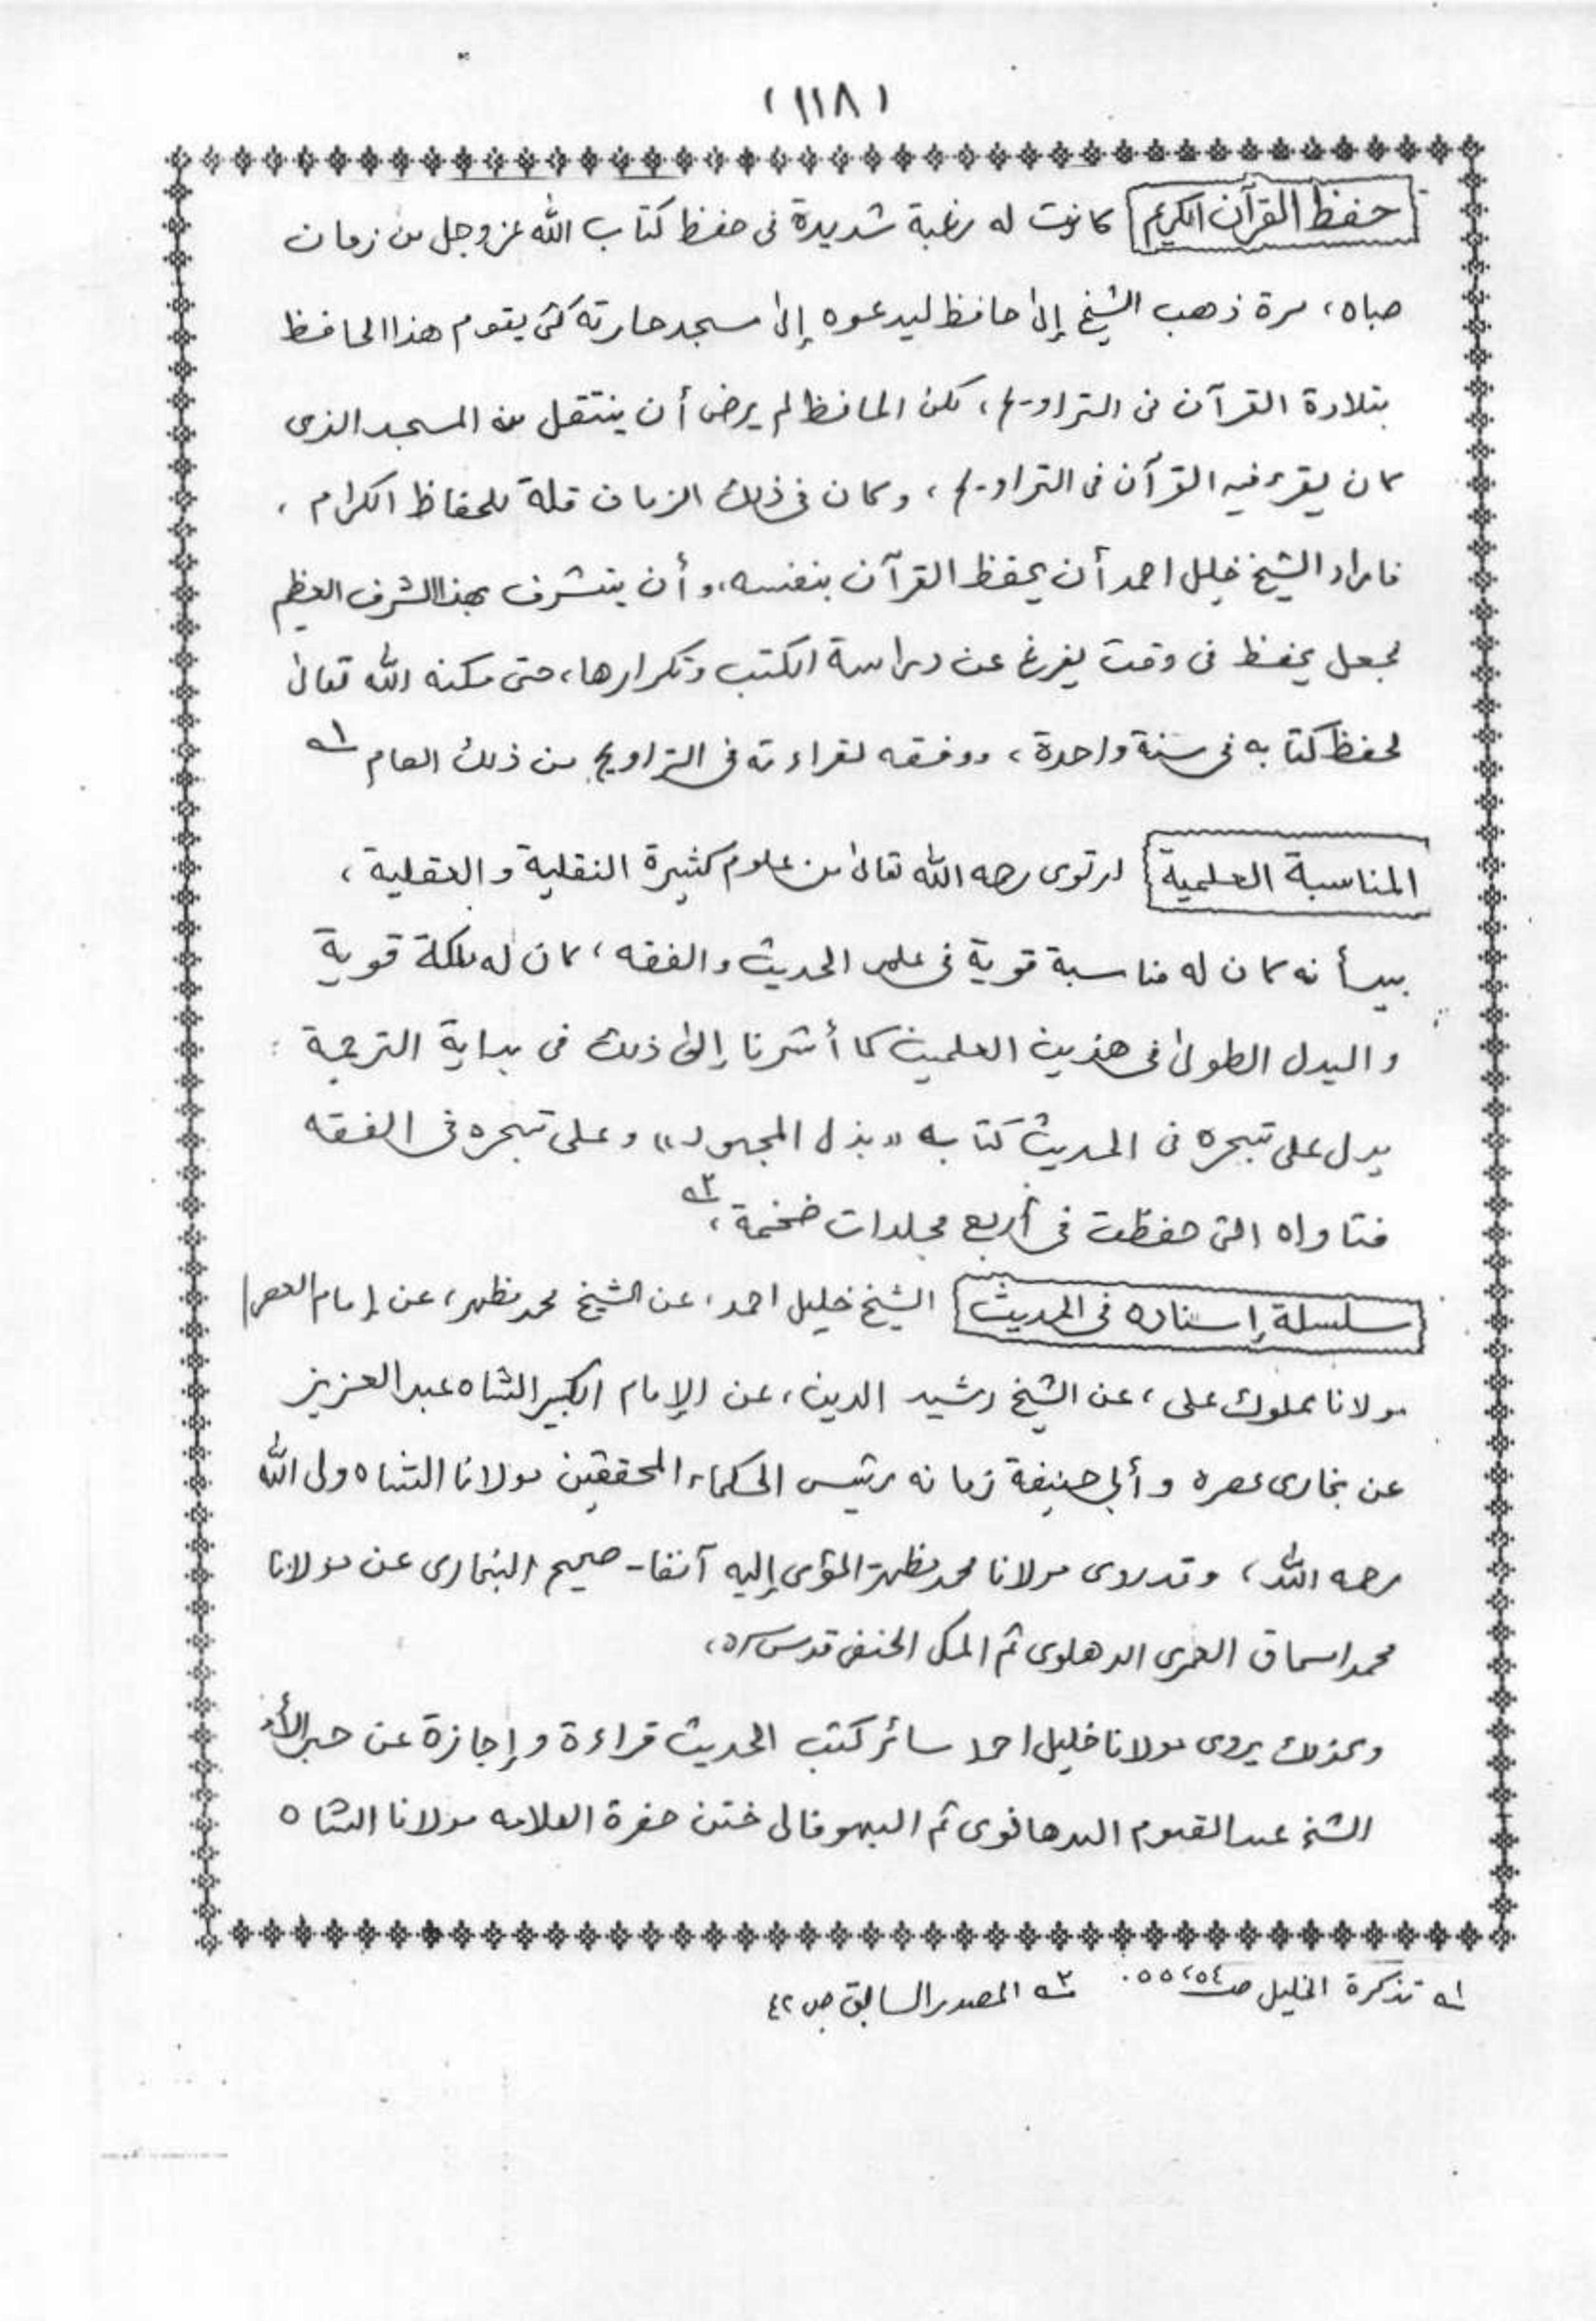 (١١٨)
حفظ القرآن الكريم كانت له رغبة شديدة فى حفظ كتاب الله عز وجل من زمان
صباه، مرة ذهب الشيخ إلى حافظ ليدعوه إلى مسجد حارته كى يقوم هذا الحافظ
بتلاوة القرآن فى التراويح، لكن الحافظ لم يرض أن ينتقل من المسجد الذى
كان يقرء فيه القرآن فى التراويح، وكان فى ذلك الزمان قلة للحفاظ الكرام،
فاراد الشيخ خليل احمد أن يحفظ القرآن بنفسه، وأن يتشرف بهذا الشرف العظيم
فجعل يحفظ فى وقت يفرغ عن دراسة الكتب وتكرارها، حتى مكنه الله تعالى
لحفظ كتابه فى سنة واحدة، ووفقه لقراءته فى التراويح من ذلك العام ١ـه
المناسبة العلمية ارتوى رحمه الله تعالى من علوم كثيرة النقلية والعقلية،
بيد أنه كان له مناسبة قوية فى علمى الحديث والفقه، كان له ملكة قوية
واليدل الطولى فى هذين العلمين كما أشرنا إلى ذلك فى بداية الترجمة
يدل على تبحره فى الحديث كتابه «بذل المجهود» وعلى تبحره فى الفقه
فتاواه التى حفظت فى أربع مجلدات ضخمة، ٢ـه
سلسلة إسناده فى الحديث الشيخ خليل احمد، عن الشيخ محمد مظهر، عن إمام العصر
مولانا مملوك على، عن الشيخ رشيد الدين، عن الإمام الكبير الشاه عبد العزيز
عن بخارى عصره وأبى حنيفة زمانه رئيس الحكماء المحققين مولانا الشاه ولى الله
رحمه الله، وقد روى مولانا محمد مظهر المؤمى إليه آنفا- صحيح البخارى عن مولانا
محمد اسحاق العمرى الدهلوى ثم المكى الحنفى قدس سره،
وكذلك يروى مولانا خليل احمد سائر كتب الحديث قراءة وإجازة عن حبر الأمة
الشيخ عبد القيوم البدهانوى ثم البهوفالى ختن حضرة العلامه مولانا الشاه
١ـه تذكرة الخليل صـ ٥٤، ٥٥. ٢ـه المصدر السابق ص ٤٢